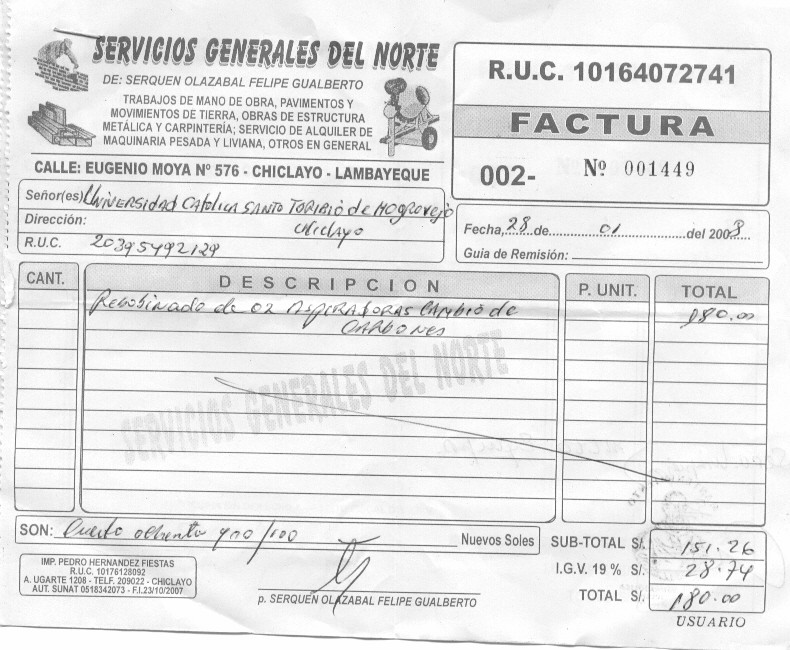 SERVICIOS GENERALES DEL NORTE
DE: SERQUEN OLAZABAL FELIPE GUALBERTO
TRABAJOS DE MANO DE OBRA, PAVIMENTOS Y
MOVIMIENTOS DE TIERRA, OBRAS DE ESTRUCTURA
METÁLICA Y CARPINTERÍA; SERVICIO DE ALQUILER DE
MAQUINARIA PESADA Y LIVIANA, OTROS EN GENERAL
CALLE: EUGENIO MOYA Nº 576 - CHICLAYO - LAMBAYEQUE
R.U.C. 10164072741
FACTURA
002- Nº 001449
Señor(es) Universidad Catolica Santo Toribio de Mogrovejo
Dirección: Chiclayo
R.U.C. 20395492129
Fecha, 28 de 01 del 2008
Guia de Remisión:
CANT. DESCRIPCION P. UNIT. TOTAL
Rebobinado de 02 Aspiradoras Cambio de 180.00
Carbones
SERVICIOS GENERALES DEL NORTE
SON: Ciento ochenta y 00/100 Nuevos Soles
SUB-TOTAL S/. 151.26
I.G.V. 19 % S/. 28.74
TOTAL S/. 180.00
USUARIO
IMP. PEDRO HERNANDEZ FIESTAS
R.U.C. 10176128092
A. UGARTE 1208 - TELF. 209022 - CHICLAYO
AUT. SUNAT 0518342073 - F.I.23/10/2007
p. SERQUEN OLAZABAL FELIPE GUALBERTO